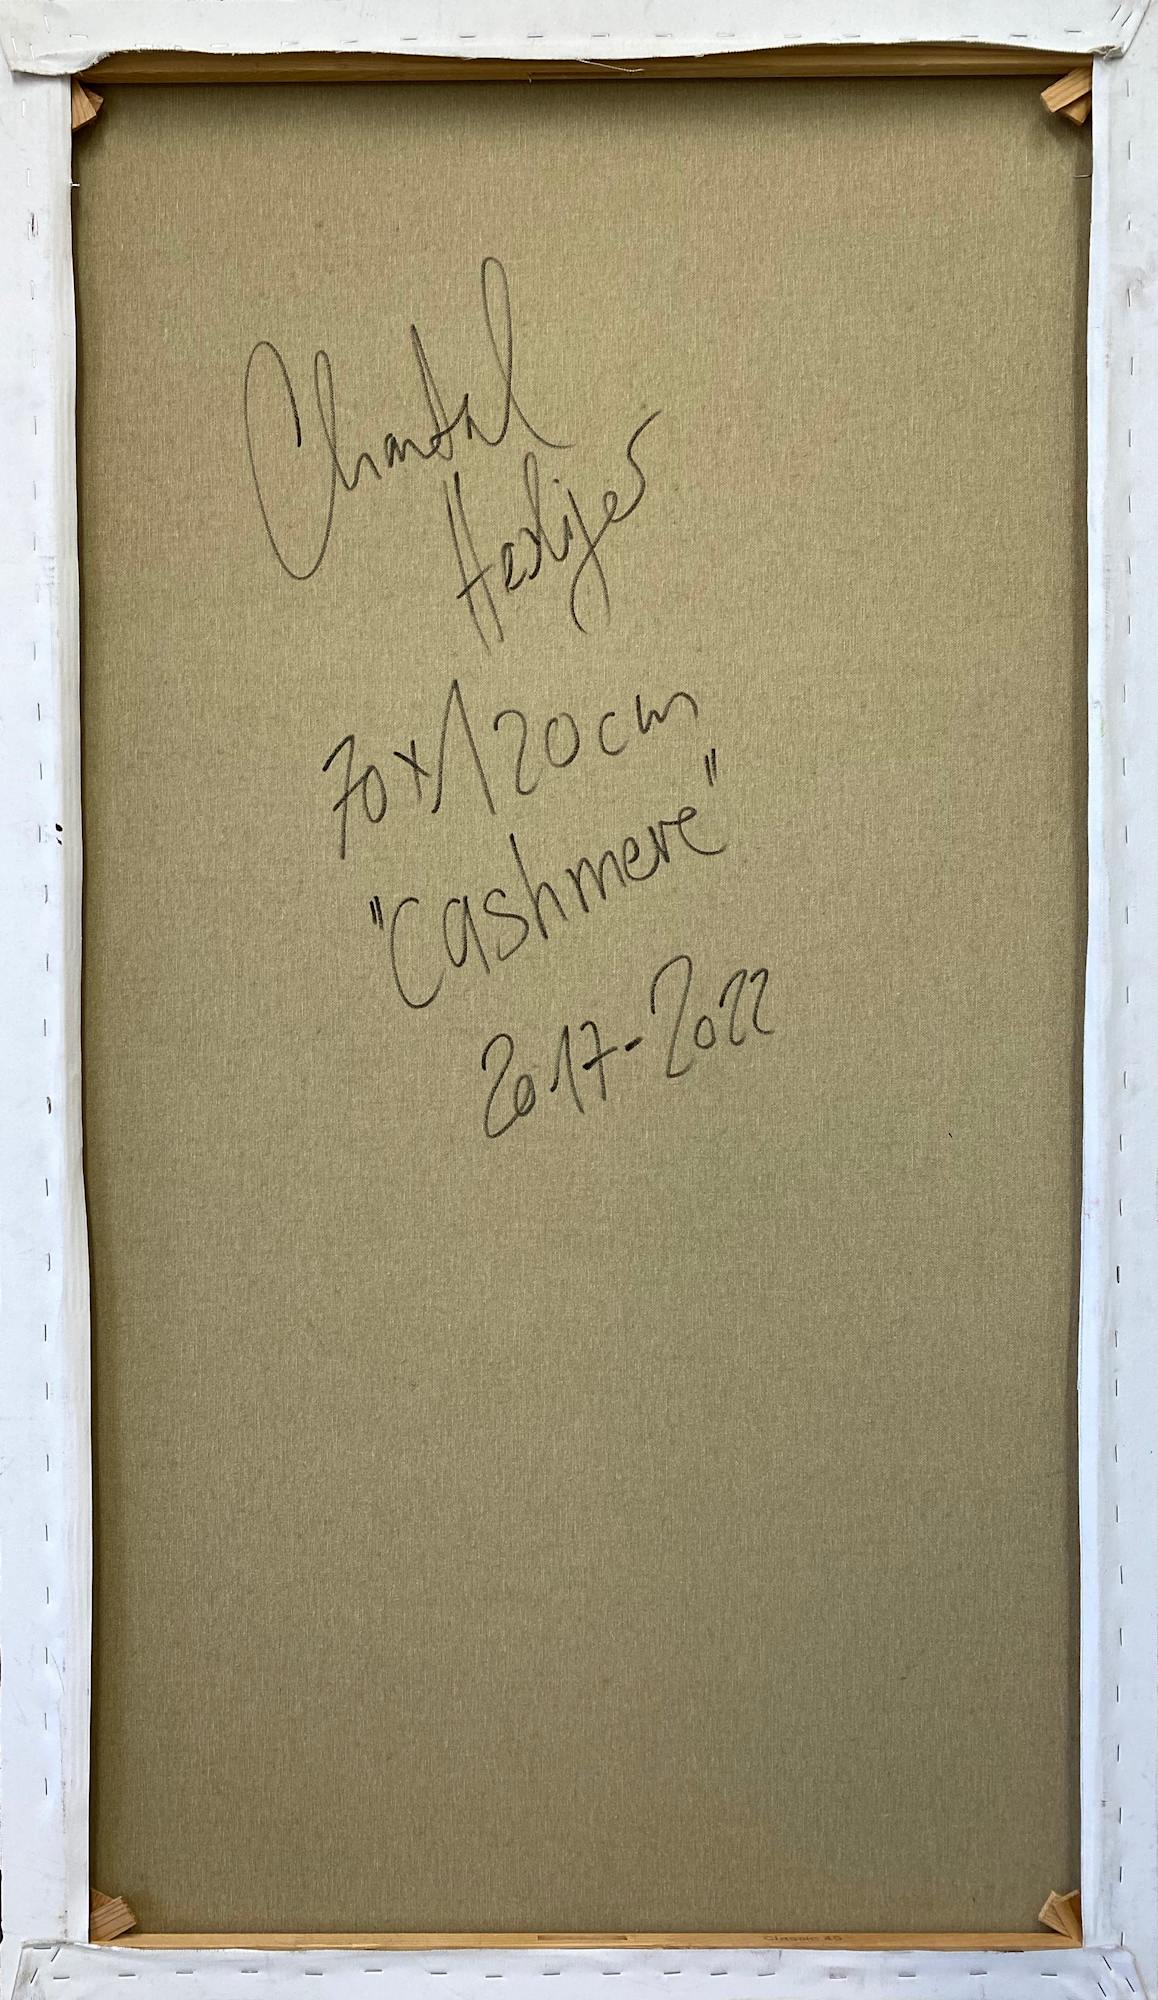 Chantal
Hediger
70x120cm
"Cashmere"
2017-2022
Classic 45